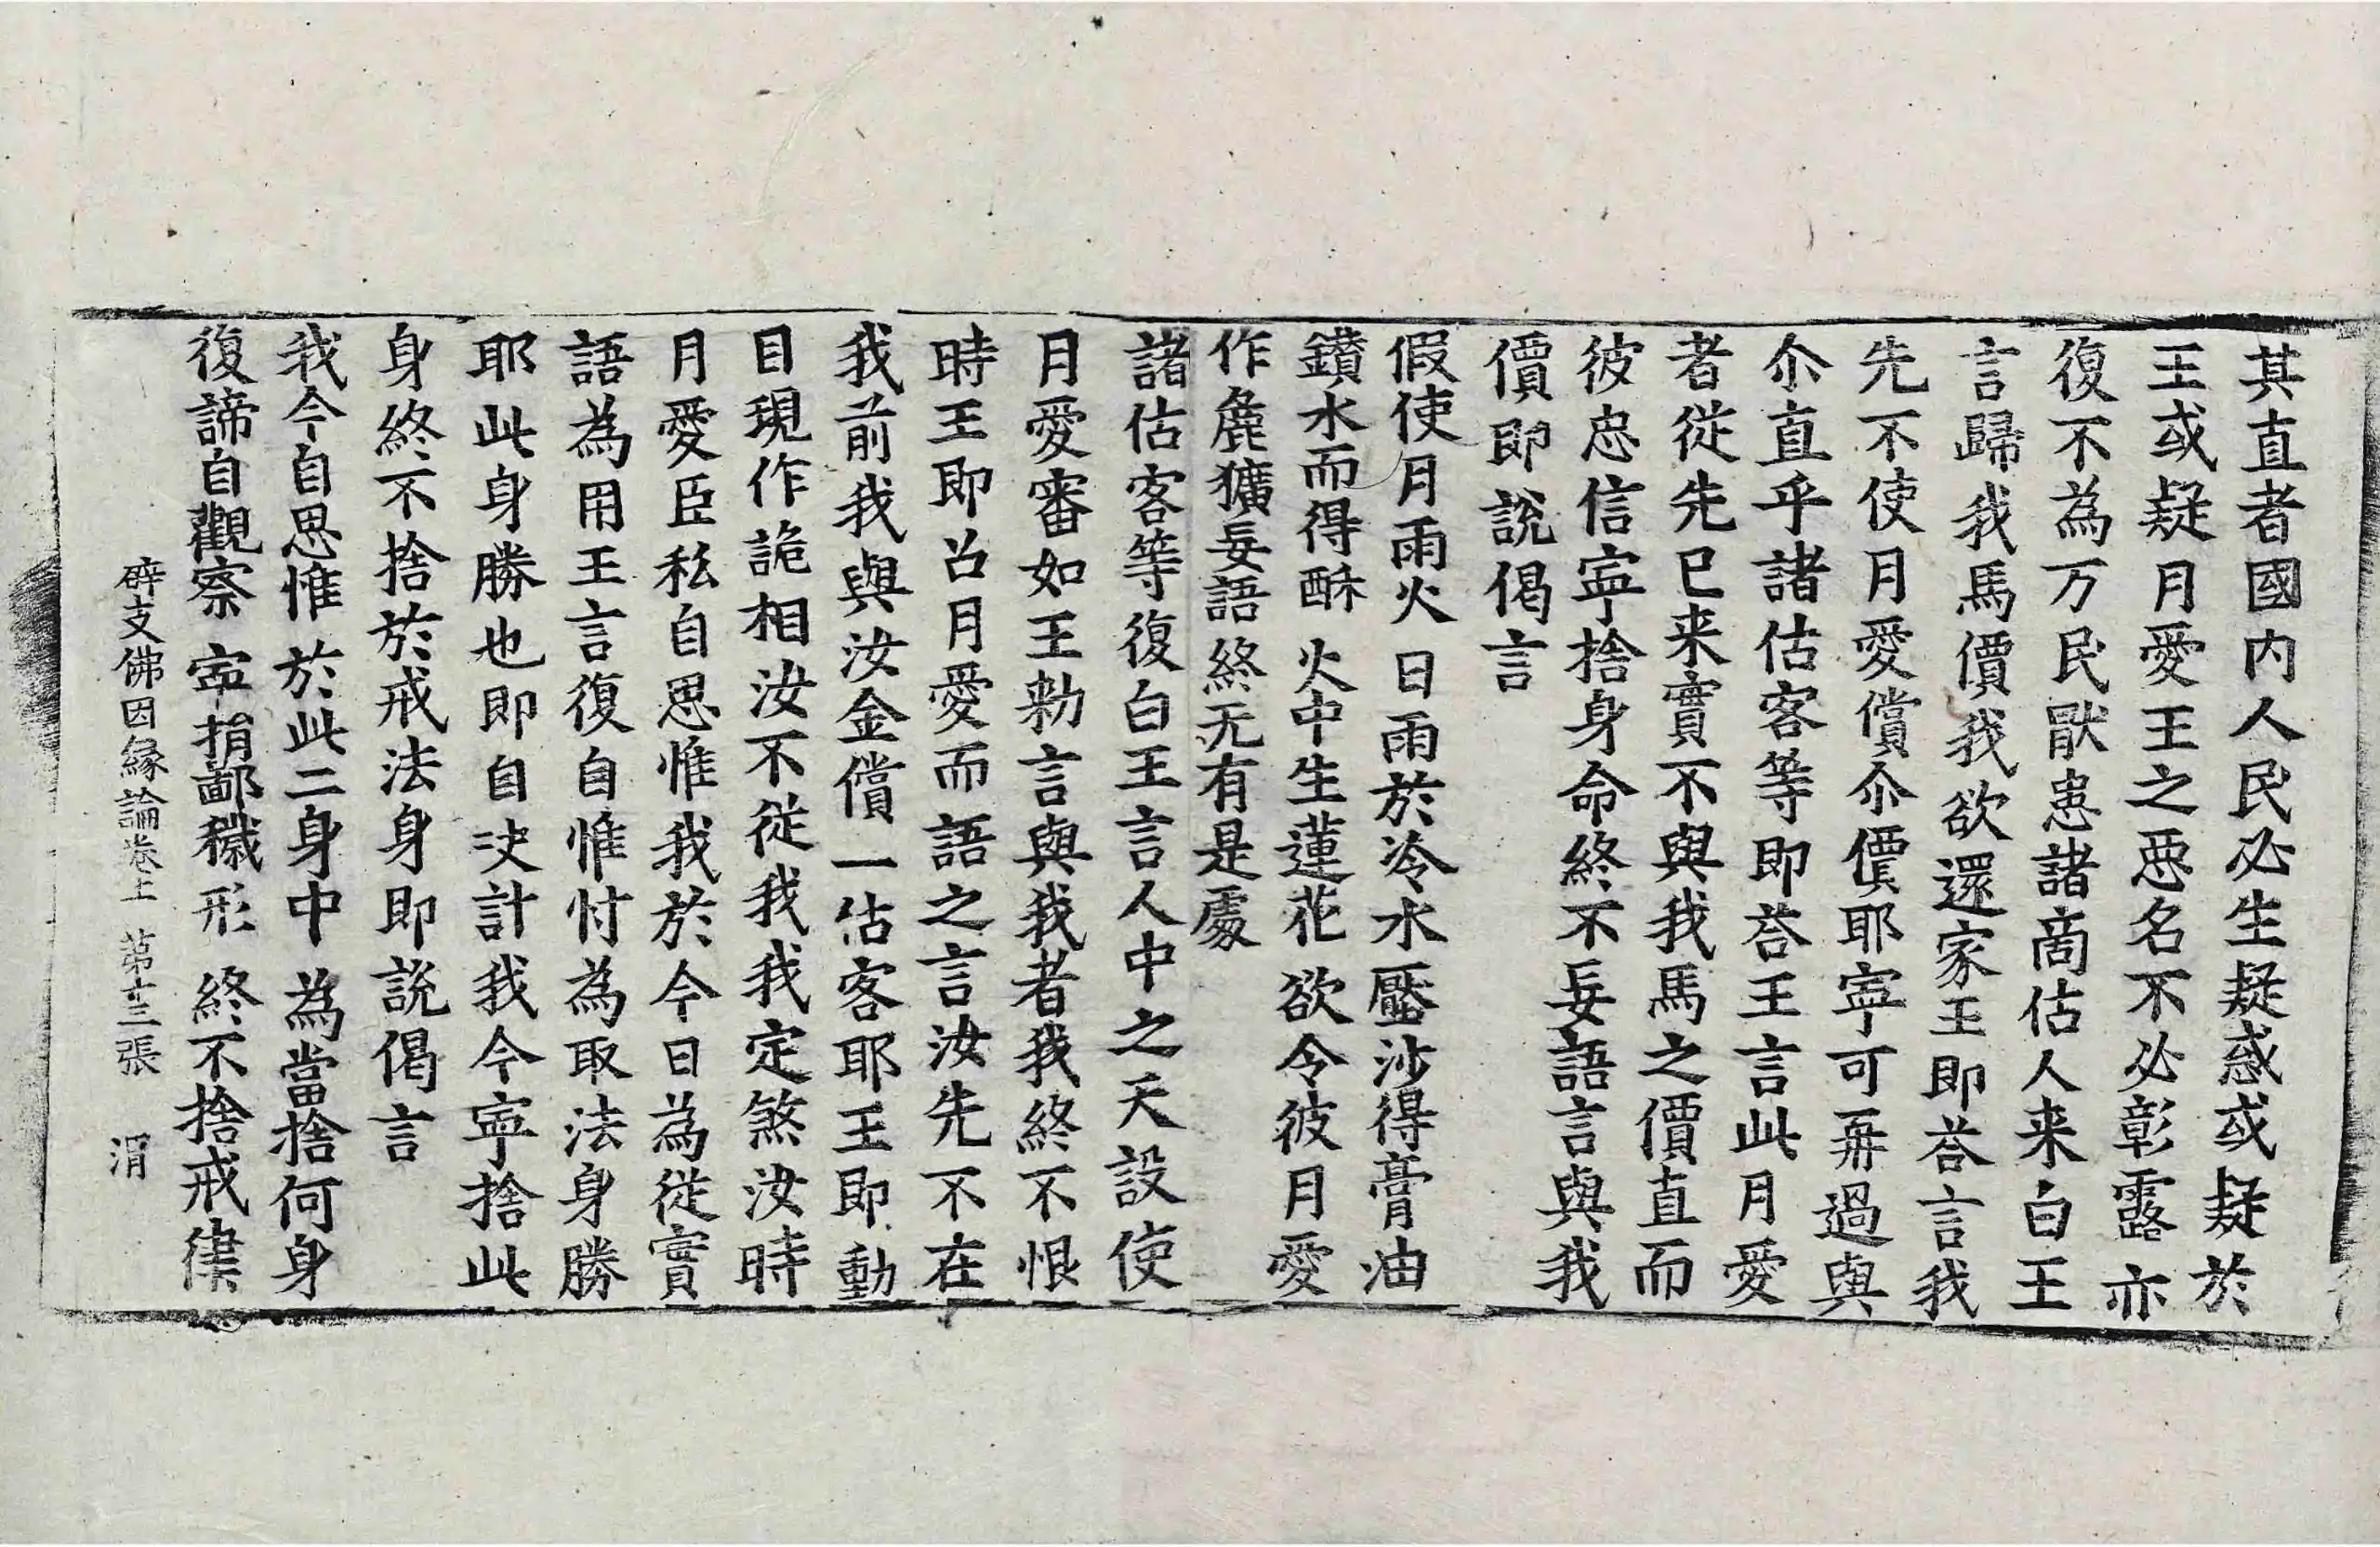 其直者國内人民必生疑惑或疑於
王或疑月愛王之惡名不必彰露亦
復不為万民猒患諸啇估人来白王
言歸我馬價我欲還家王即荅言我
先不使月愛償尒價耶寧可再過與
尒直乎諸估客等即荅王言此月愛
者從先已来實不與我馬之價直而
彼忠信寧捨身命終不妄語言與我
價即說偈言
假使月雨火 日雨於冷水 壓沙得膏油
鑚水而得酥 火中生蓮花 欲令彼月愛
作麁獷妄語 終无有是處
諸估客等復白王言人中之天設使
月愛審如王勑言與我者我終不恨
時王即召月愛而語之言汝先不在
我前我與汝金償一估客耶王即動
目現作詭相汝不從我我定煞汝時
月愛臣私自思惟我於今日為從實
語為用王言復自惟忖為取法身勝
耶此身勝也即自决計我今寧捨此
身終不捨於戒法身即說偈言
我今自思惟 於此二身中 為當捨何身
復諦自觀察 寧捐鄙穢形 終不捨戒律
辟支佛因縁論卷上 苐十三張 涓